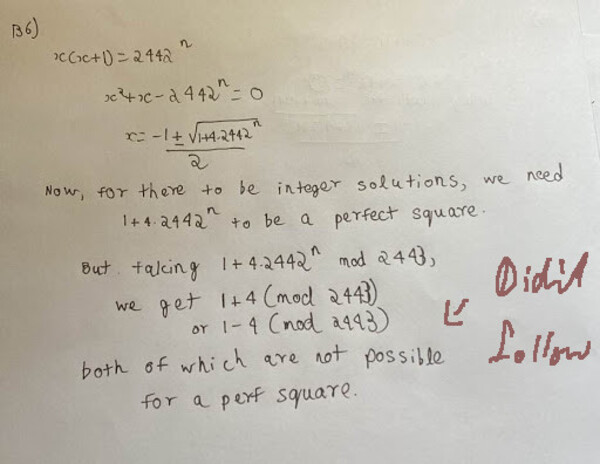 B6)
x(x+1) = 2442^n
x²+x-2442^n = 0
x = (-1 ± √(1+4.2442^n))/2
Now, for there to be integer solutions, we need
1+4.2442^n to be a perfect square.
But taking 1+4.2442^n mod 2443,
we get 1+4 (mod 2443)
or 1-4 (mod 2443)
both of which are not possible
for a perf square.
Didn't
follow